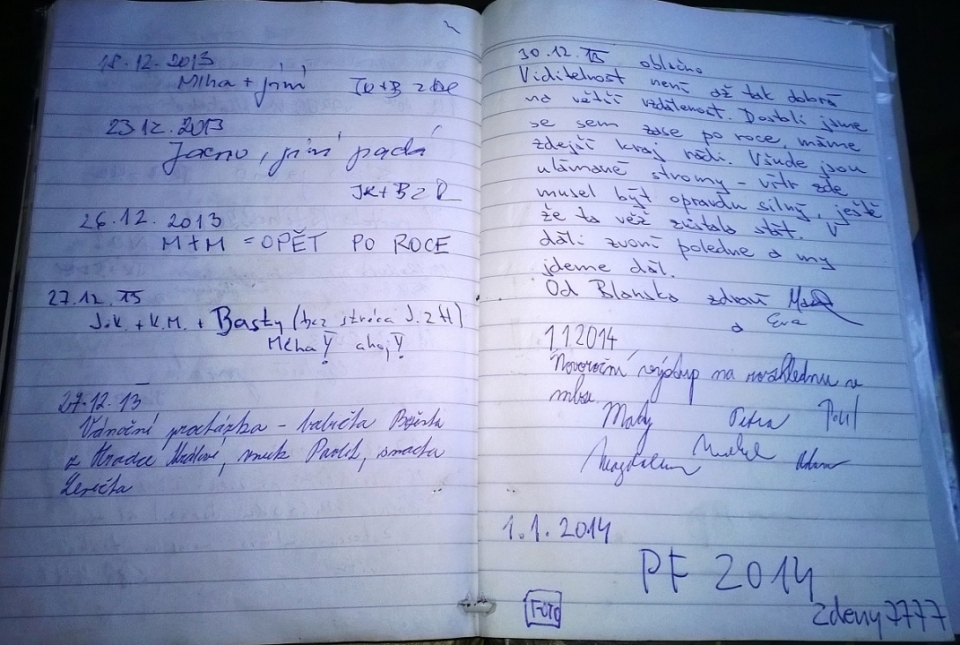 18.12.2013
Mlha + jíní JK+B z
23.12.2013
Jasno, jíní padá
JK+B z
26.12.2013
M+M = OPĚT PO ROCE
27.12.
J.K. + K.M. + Basty (bez strýca J. z H)
Mlha! ahoj!
27.12.13
Vánoční procházka - babička Božena
z Hradce Králové, vnuk Pavlík, smečka
30.12. oblačno
Viditelnost není až tak dobrá
na větší vzdálenost. Dostali jsme
se sem zase po roce, máme
zdejší kraj rádi. Všude jsou
ulámané stromy - vítr zde
musel být opravdu silný, ještě
že ta věž zůstala stát. V
dáli zvoní poledne a my
jdeme dál.
Od Blanska zdraví
a Eva
1.1.2014
Novoroční výstup na rozhlednu v
mlze.
Petra
Magdalena
1.1.2014
PF 2014
FOTO
Zdeny7777